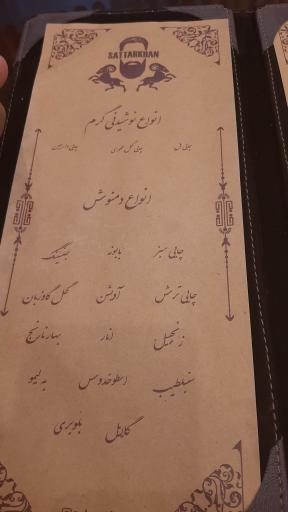 SATTARKHAN
انواع نوشیدنی گرم
چایی گل محمدی چایی دارچین
انواع دمنوش
چایی سبز بابونه جینسینگ
چایی ترش آویشن گل گاوزبان
زنجبیل انار بهار نارنج
سنبلطیب اسطوخدوس به لیمو
گلابل بلوبری